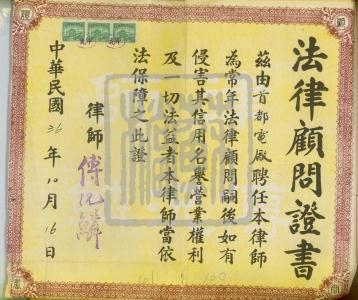 法律顧問證書
茲由首都電廠聘任本律師
為常年法律顧問嗣後如有
侵害其信用名譽營業權利
及一切法益者本律師當依
法保障之此證
律師
中華民國36年10月16日